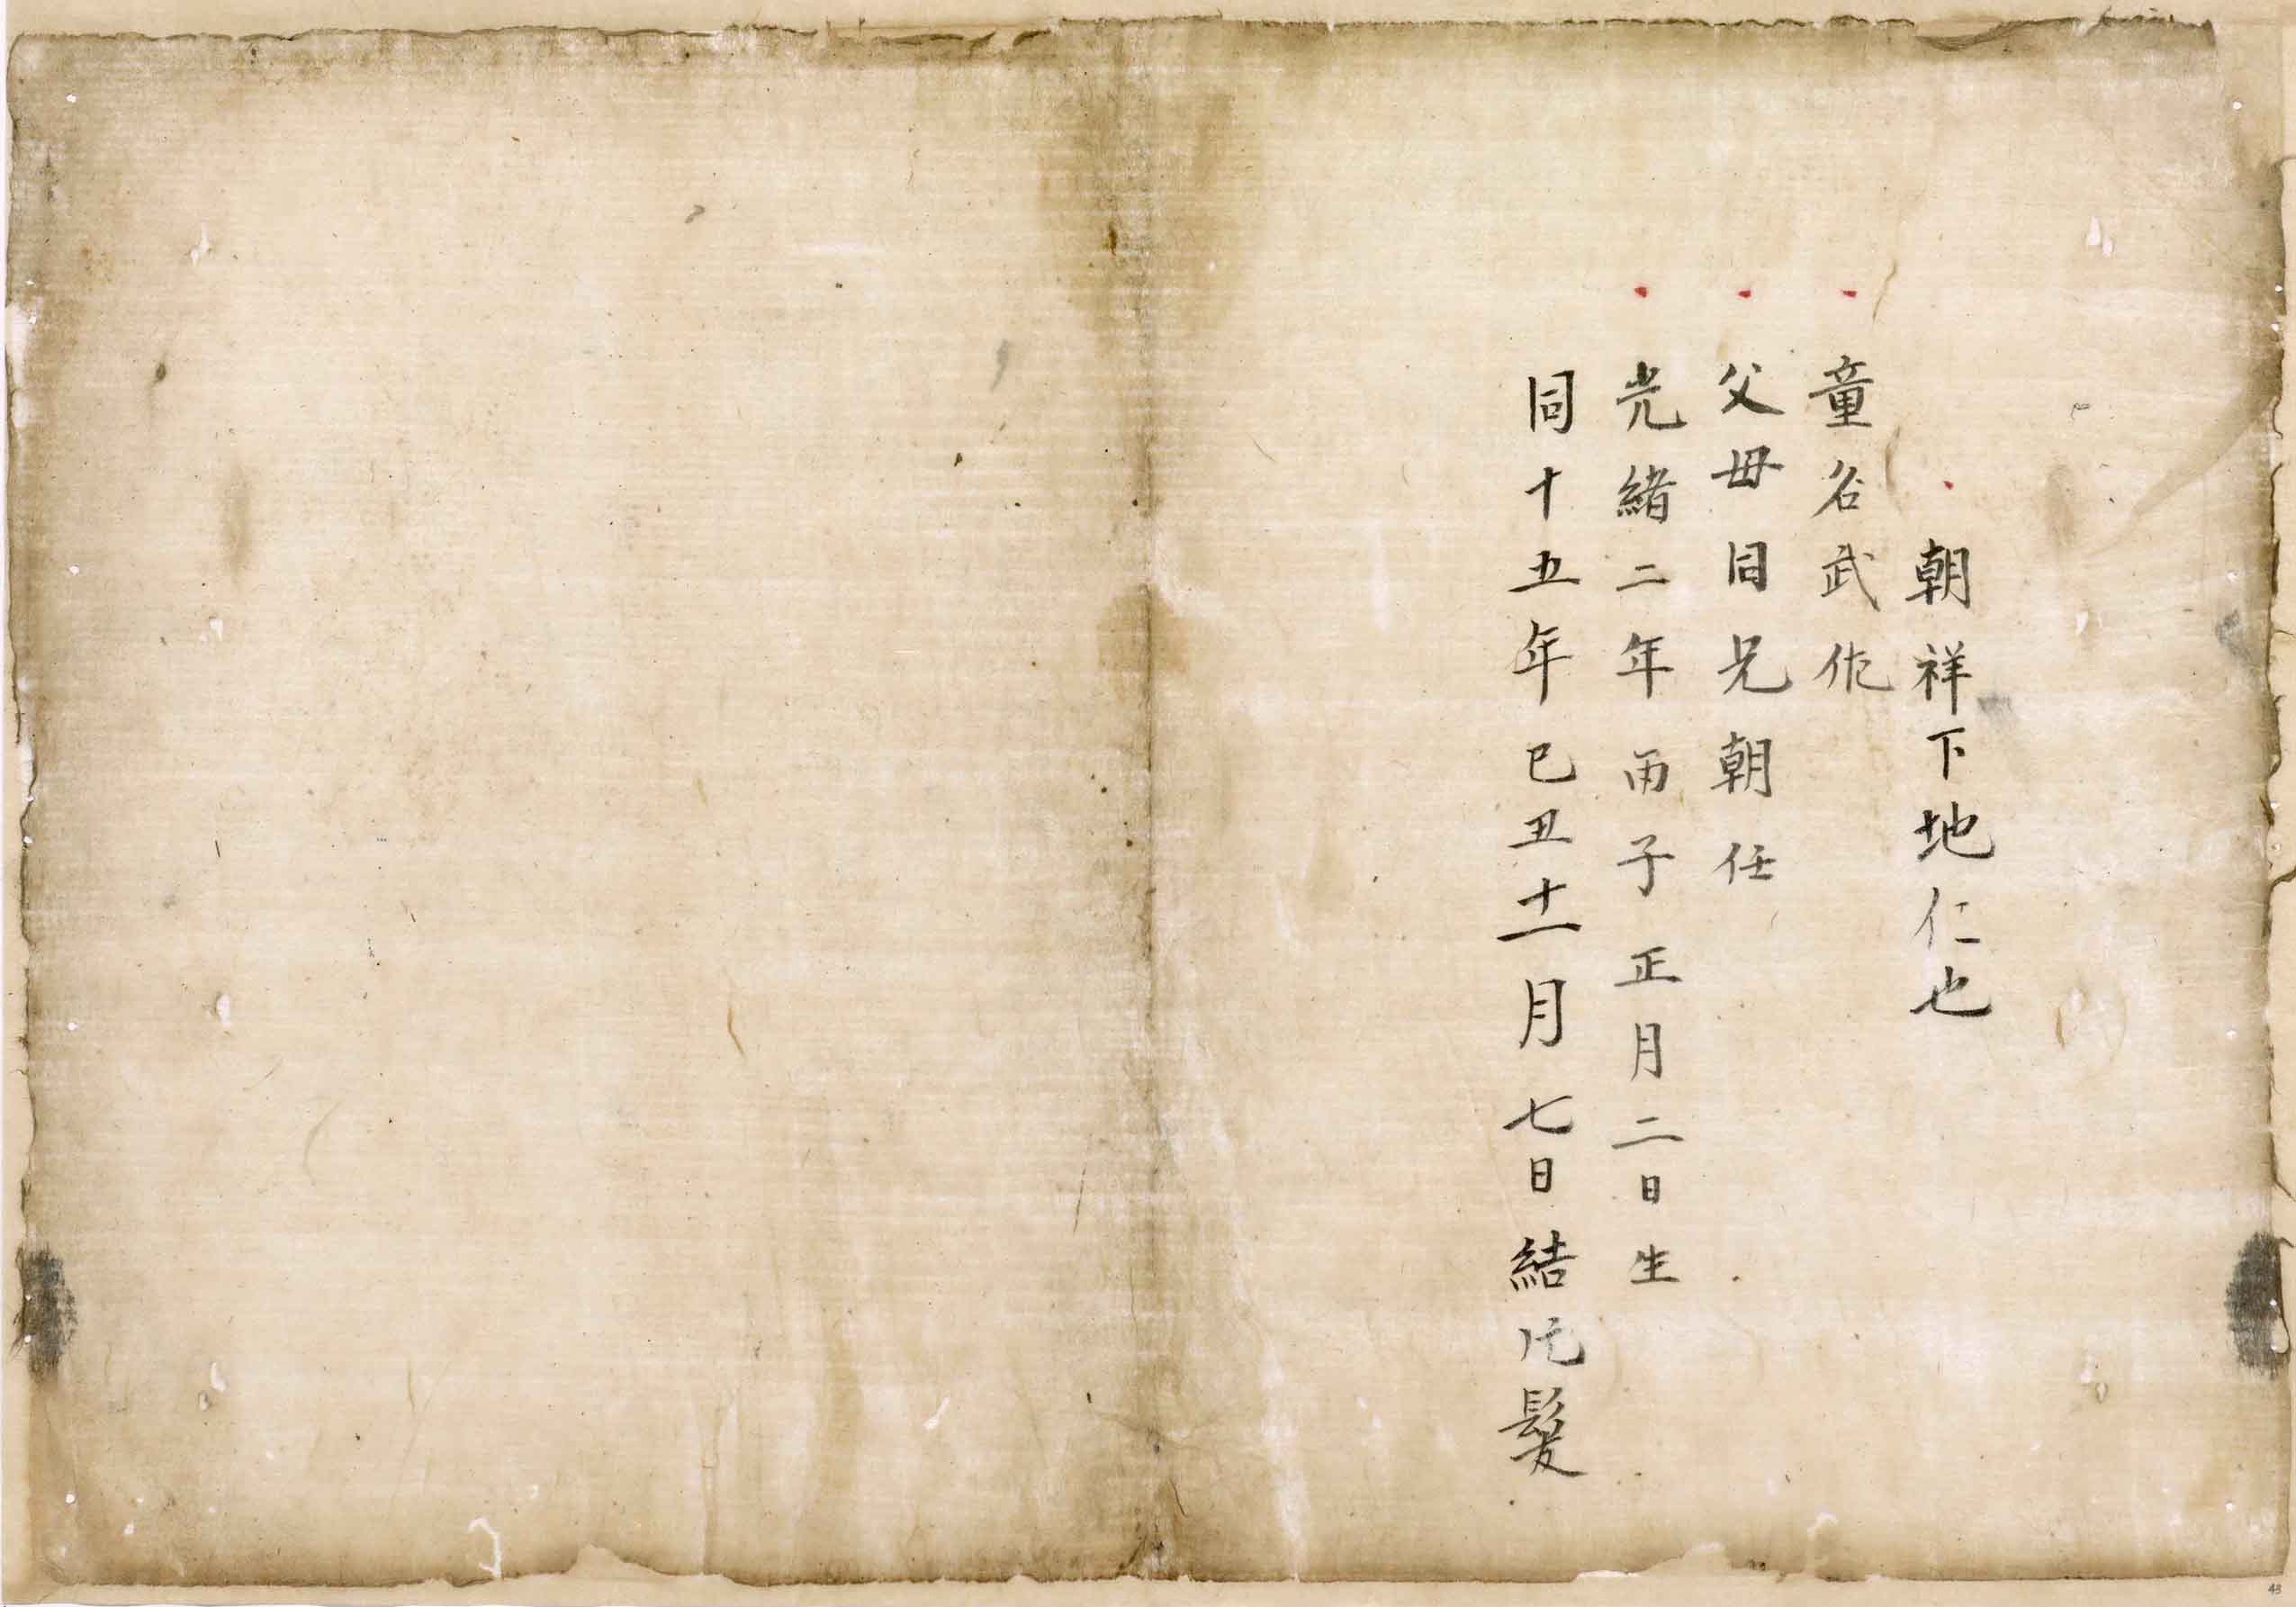 朝祥下地仁也
童名武
父母同兄朝任
光緒二年丙子正月二日生
同十五年己丑十一月七日結髮